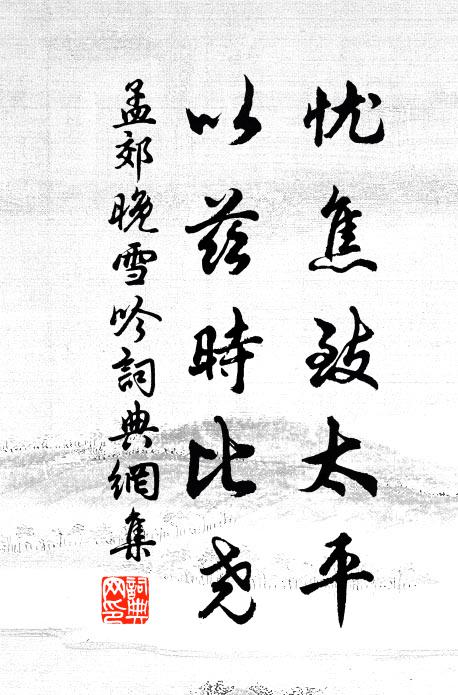 忧焦致太平
以兹時比尧
孟郊晚雪吟詞典網集
詞典
网印